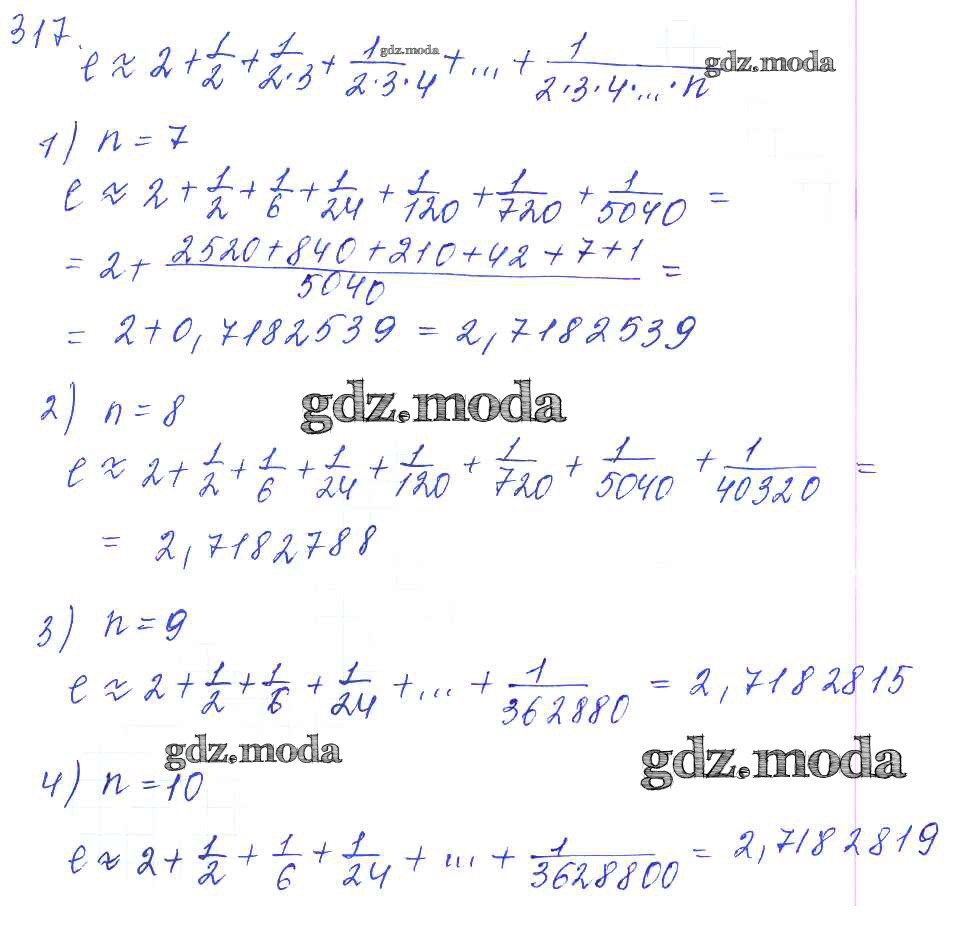 317.
e ≈ 2 + 1/2 + 1/(2·3) + 1/(2·3·4) + ... + 1/(2·3·4·...·n)
gdz.moda
gdz.moda
1) n = 7
e ≈ 2 + 1/2 + 1/6 + 1/24 + 1/120 + 1/720 + 1/5040 =
= 2 + (2520 + 840 + 210 + 42 + 7 + 1)/5040 =
= 2 + 0,7182539 = 2,7182539
2) n = 8
gdz.moda
e ≈ 2 + 1/2 + 1/6 + 1/24 + 1/120 + 1/720 + 1/5040 + 1/40320 =
= 2,7182788
3) n = 9
e ≈ 2 + 1/2 + 1/6 + 1/24 + ... + 1/362880 = 2,7182815
gdz.moda
gdz.moda
4) n = 10
e ≈ 2 + 1/2 + 1/6 + 1/24 + ... + 1/3628800 = 2,7182819